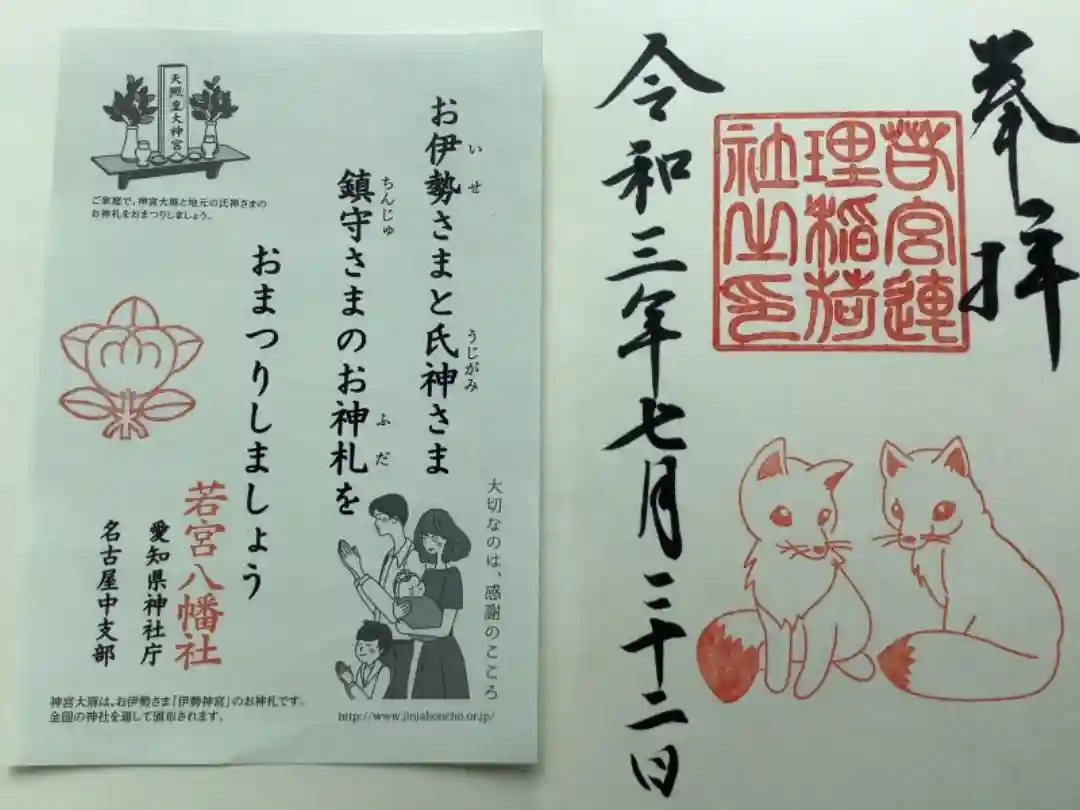 天照皇大神宮
ご家庭で、神宮大麻と地元の氏神さまの
お神札をおまつりしましょう。
いせ
うじがみ
お伊勢さまと氏神さま
ちんじゅ
ふだ
鎮守さまのお神札を
おまつりしましょう
大切なのは、感謝のこころ
若宮八幡社
愛知県神社庁
名古屋中支部
神宮大麻は、お伊勢さま「伊勢神宮」のお神札です。
全国の神社を通して頒布されます。
http://www.jinjahoncho.or.jp/
奉拝
若宮連
理稲荷
社之印
令和三年七月二十二日